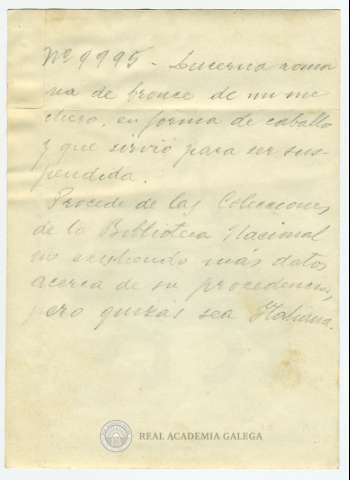 Nº 9995 - Lucerna roma
na de bronce de un me
chero, en forma de caballo
y que sirvió para ser sus-
pendida.
Procede de las Colecciones
de la Biblioteca Nacional
no existiendo más datos
acerca de su procedencia,
pero quizás sea Italiana.
REAL ACADEMIA GALEGA